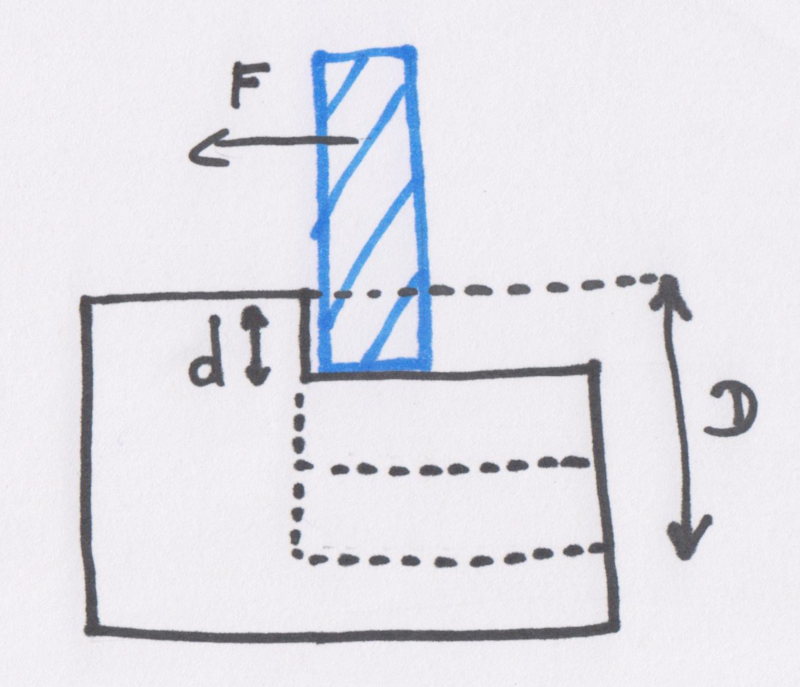 F
d
D